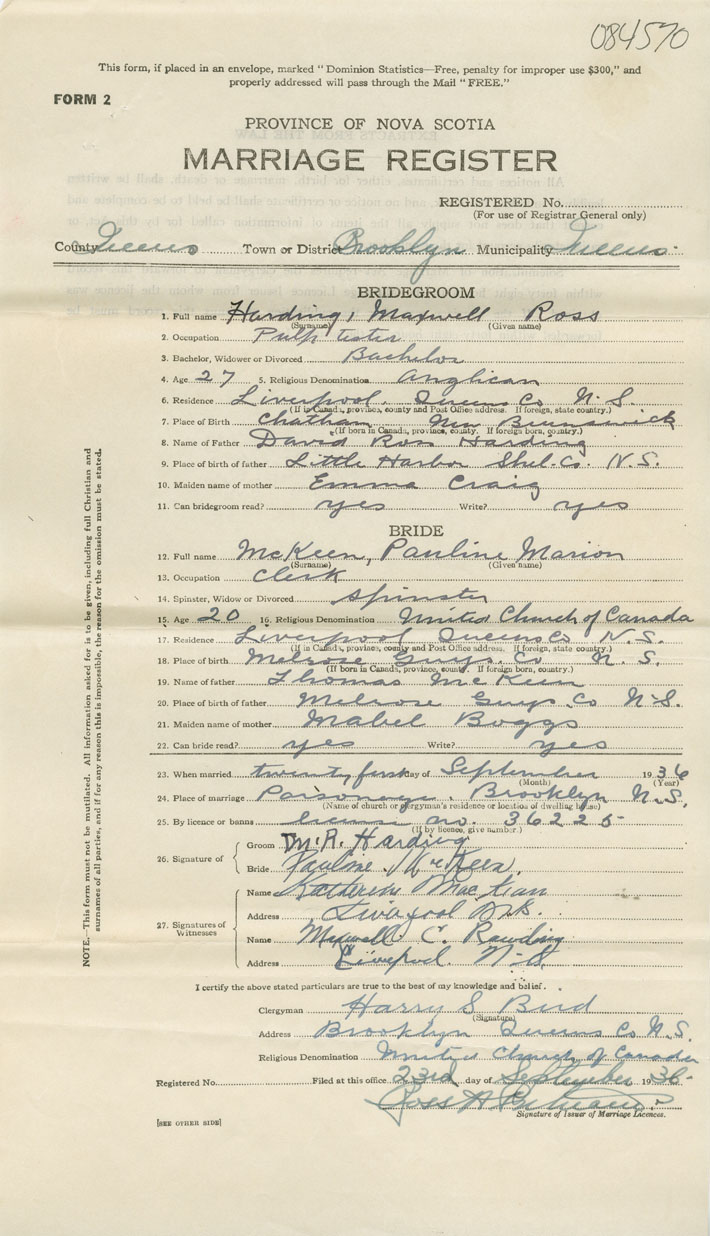 084570
This form, if placed in an envelope, marked "Dominion Statistics—Free, penalty for improper use $300," and
properly addressed will pass through the Mail "FREE."
FORM 2
PROVINCE OF NOVA SCOTIA
MARRIAGE REGISTER
REGISTERED No.
(For use of Registrar General only)
County Queens Town or District Brooklyn Municipality Queens
BRIDEGROOM
1. Full name Harding, Maxwell Ross
(Surname) (Given name)
2. Occupation Pulp tester
3. Bachelor, Widower or Divorced Bachelor
4. Age 27 5. Religious Denomination Anglican
6. Residence Liverpool, Queens Co N.S.
(If in Canada, province, county and Post Office address. If foreign, state country.)
7. Place of Birth Chatham New Brunswick
(If born in Canada, province, county. If foreign born, country.)
8. Name of Father David Ross Harding
9. Place of birth of father Little Harbor Shel. Co. N.S.
10. Maiden name of mother Emma Craig
11. Can bridegroom read? yes Write? yes
BRIDE
12. Full name McKeen, Pauline Marion
(Surname) (Given name)
13. Occupation Clerk
14. Spinster, Widow or Divorced Spinster
15. Age 20 16. Religious Denomination United Church of Canada
17. Residence Liverpool Queens Co N.S.
(If in Canada, province, county and Post Office address. If foreign, state country.)
18. Place of birth Melrose Guys. Co. N.S.
(If born in Canada, province, county. If foreign born, country.)
19. Name of father Thomas McKeen
20. Place of birth of father Melrose Guys. Co N.S.
21. Maiden name of mother Mabel Boggs
22. Can bride read? yes Write? yes
23. When married twenty first day of September 1936
(Month) (Year)
24. Place of marriage Parsonage, Brooklyn N.S.
(Name of church or clergyman's residence or location of dwelling house)
25. By licence or banns license no. 36225
(If by licence, give number.)
26. Signature of
Groom M.R. Harding
Bride Pauline McKeen.
27. Signatures of Witnesses
Name Katherine MacKean
Address Liverpool N.S.
Name Maxwell C. Rawding
Address Liverpool N.S.
I certify the above stated particulars are true to the best of my knowledge and belief.
Clergyman Harry S Bird
(Signature)
Address Brooklyn Queens Co N.S.
Religious Denomination United Church of Canada
Registered No. Filed at this office 23rd day of September 1936
Ross A
Signature of Issuer of Marriage Licences.
[SEE OTHER SIDE]
NOTE.—This form must not be mutilated. All information asked for is to be given, including full Christian and
surnames of all parties, and if for any reason this is impossible, the reason for the omission must be stated.